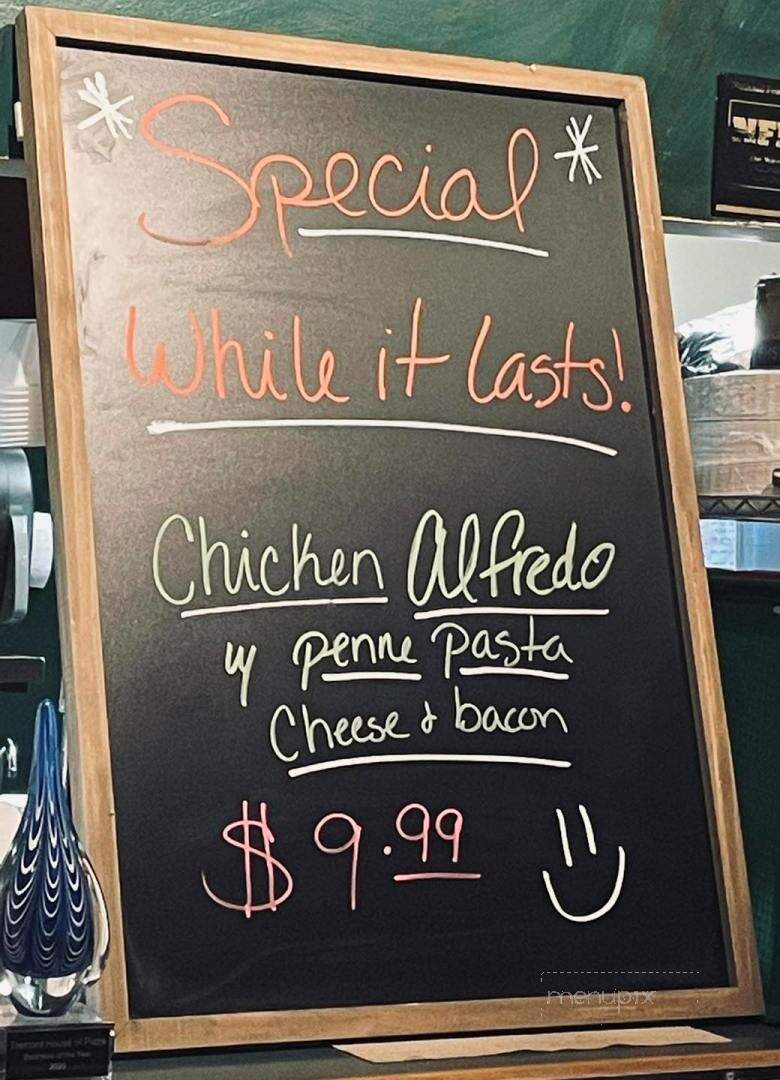 *Special*
While it lasts!
Chicken Alfredo
w penne pasta
Cheese & bacon
$9.99
menupix
House of Pizza
Business of the Year
2020